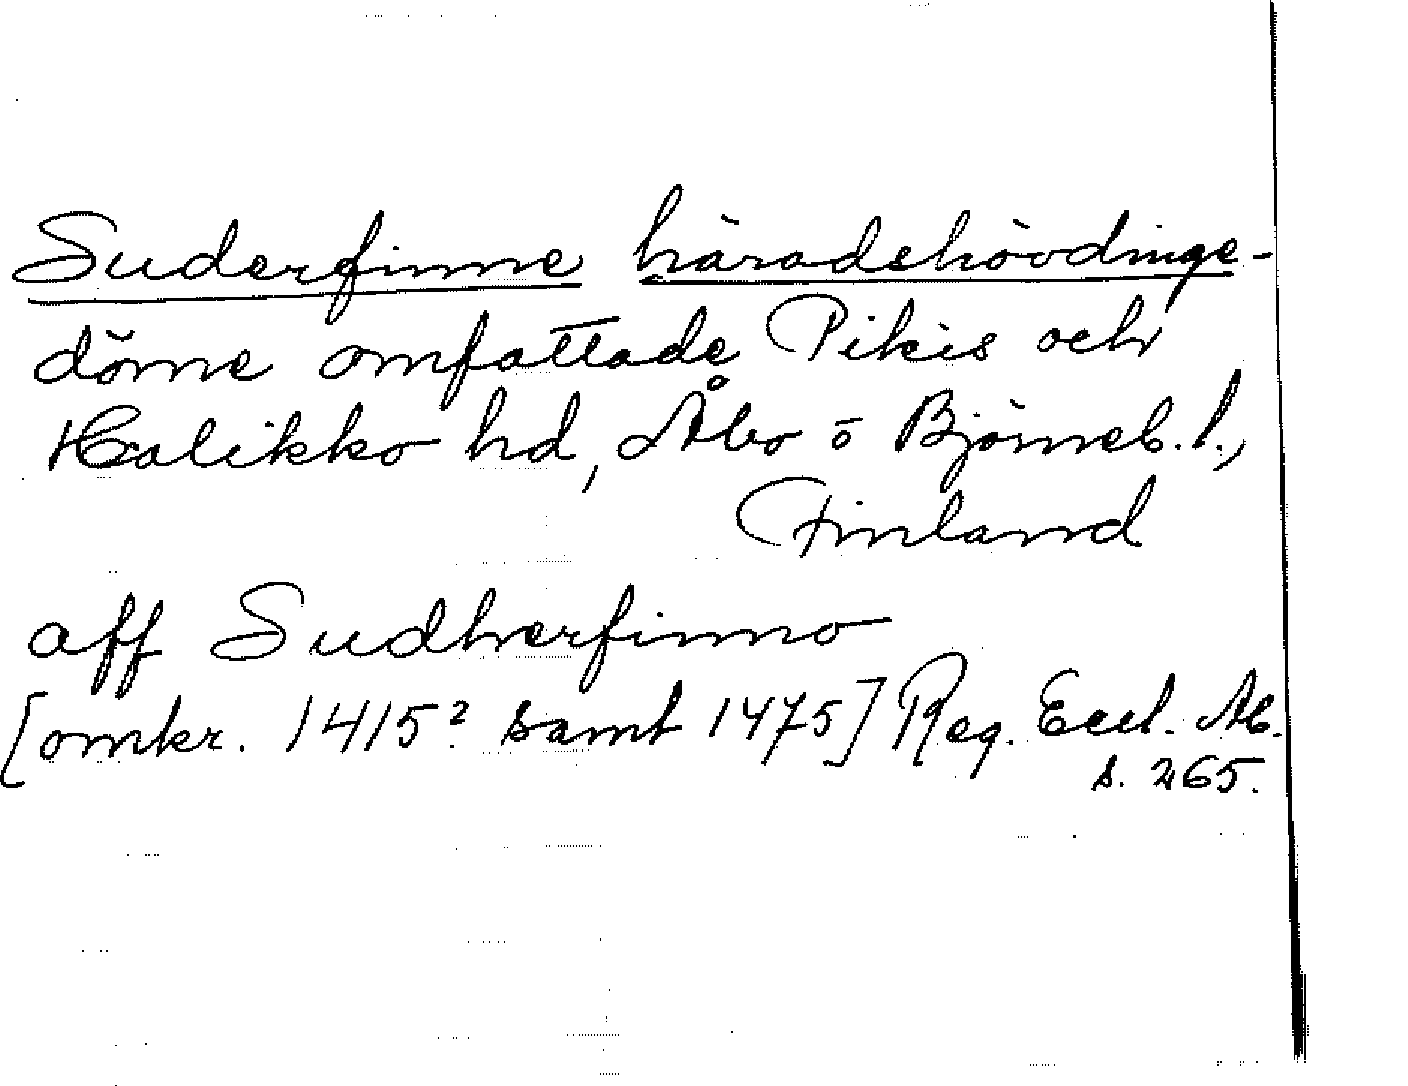 Suderfinne häradshövdinge-
döme omfattade Pikis och
Halikko hd, Åbo o Björneb. l.,
Finland
aff Sudherfinno
[omkr. 1415? samt 1475] Reg. Eccl. Ab.
s. 265.